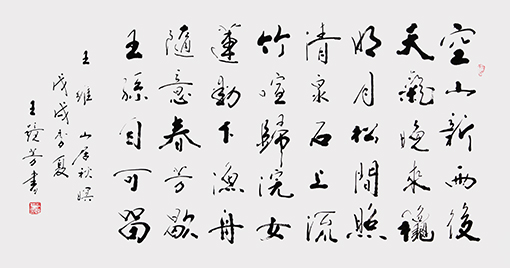 空山新雨後
天氣晚來穐
明月松間照
清泉石上流
竹喧歸浣女
蓮動下漁舟
隨意春芳歇
王孫自可留
王維 山居秋暝
戊戌季夏
王芳書